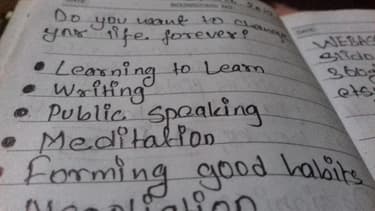 Do you want to change
your life forever?
• Learning to Learn
• Writing
• Public speaking
• Meditation
• Forming good habits